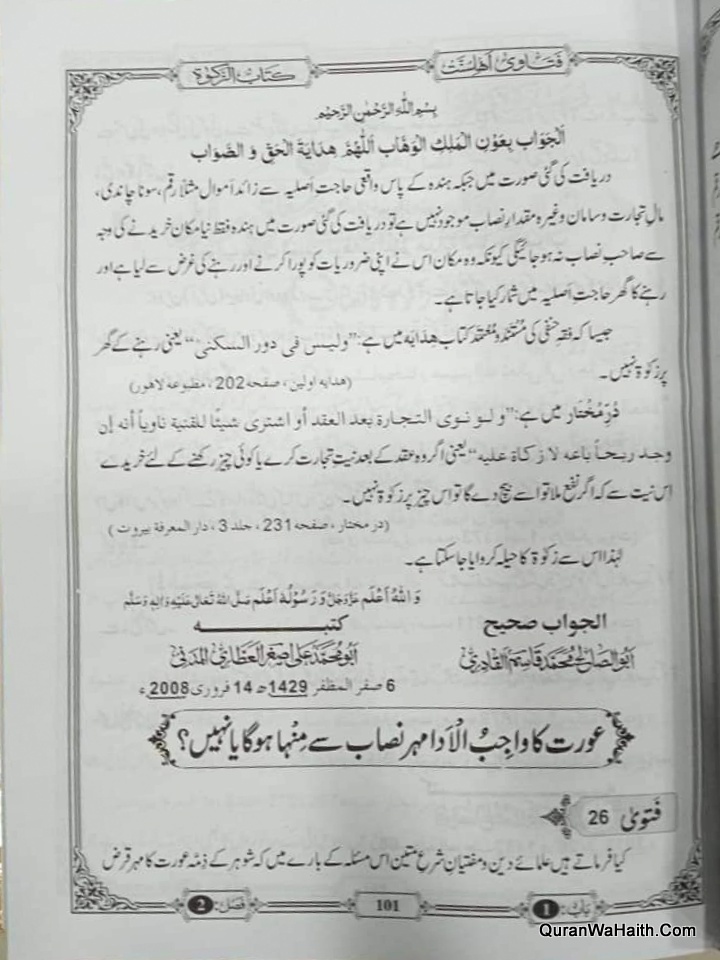 فتاویٰ اھلسنّت
کتاب الزکوٰۃ
بِسْمِ اللہِ الرَّحْمٰنِ الرَّحِیْمِ
اَلْجَوَاب بِعَوْنِ الْمَلِکِ الْوَھَّابِ اَللّٰھُمَّ ھِدَایَۃَ الْحَقِّ وَ الصَّوَابِ
دریافت کی گئی صورت میں جبکہ ہندہ کے پاس واقعی حاجتِ اصلیہ سے زائد اَموال مثلاً رقم، سونا چاندی،
مالِ تجارت و سامان وغیرہ مقدارِ نصاب موجود نہیں ہے تو دریافت کی گئی صورت میں ہندہ فقط نیا مکان خریدنے کی وجہ
سے صاحبِ نصاب نہ ہو جائیگی کیونکہ وہ مکان اس نے اپنی ضروریات کو پورا کرنے اور رہنے کی غرض سے لیا ہے اور
رہنے کا گھر حاجتِ اصلیہ میں شمار کیا جاتا ہے۔
جیسا کہ فقہِ حنفی کی مُستَنَد و مُعْتَمَد کتاب ھِدَایَہ میں ہے: ”ولیس فی دور السکنی“ یعنی رہنے کے گھر
پر زکوٰۃ نہیں۔
(ھدایہ اولین، صفحہ 202، مطبوعہ لاہور)
دُرِّ مُخْتَار میں ہے: ”ولو نوی التجارۃ بعد العقد أو اشتری شیئًا للقنیۃ ناویاً أنہ إن
وجد ربحاً باعہ لا زکاۃ علیہ“ یعنی اگر وہ عقد کے بعد نیتِ تجارت کرے یا کوئی چیز رکھنے کے لئے خریدے
اس نیت سے کہ اگر نفع ملا تو اسے بیچ دے گا تو اس چیز پر زکوٰۃ نہیں۔
(در مختار، صفحہ 231، جلد 3، دار المعرفۃ بیروت)
لہٰذا اس سے زکوٰۃ کا حیلہ کروایا جا سکتا ہے۔
وَ اللہُ اَعْلَم عَزَّوَجَلَّ وَ رَسُوْلُہٗ اَعْلَم صَلَّی اللہُ تَعَالٰی عَلَیْہِ وَاٰلِہٖ وَسَلَّم
الجواب صحیح
کتبــــــــــــہ
ابو الصالح محمد قاسم القادری
ابو محمد علی اصغر العطاری المدنی
6 صفر المظفر 1429ھ 14 فروری 2008ء
عورت کا واجبُ الْاَدا مہر نصاب سے مِنْہا ہوگا یا نہیں؟
فَتویٰ 26
کیا فرماتے ہیں علمائے دین و مفتیانِ شرعِ متین اس مسئلہ کے بارے میں کہ شوہر کے ذِمّہ عورت کا مہر قرض
باب: 1
101
فصل: 2
QuranWaHaith.Com